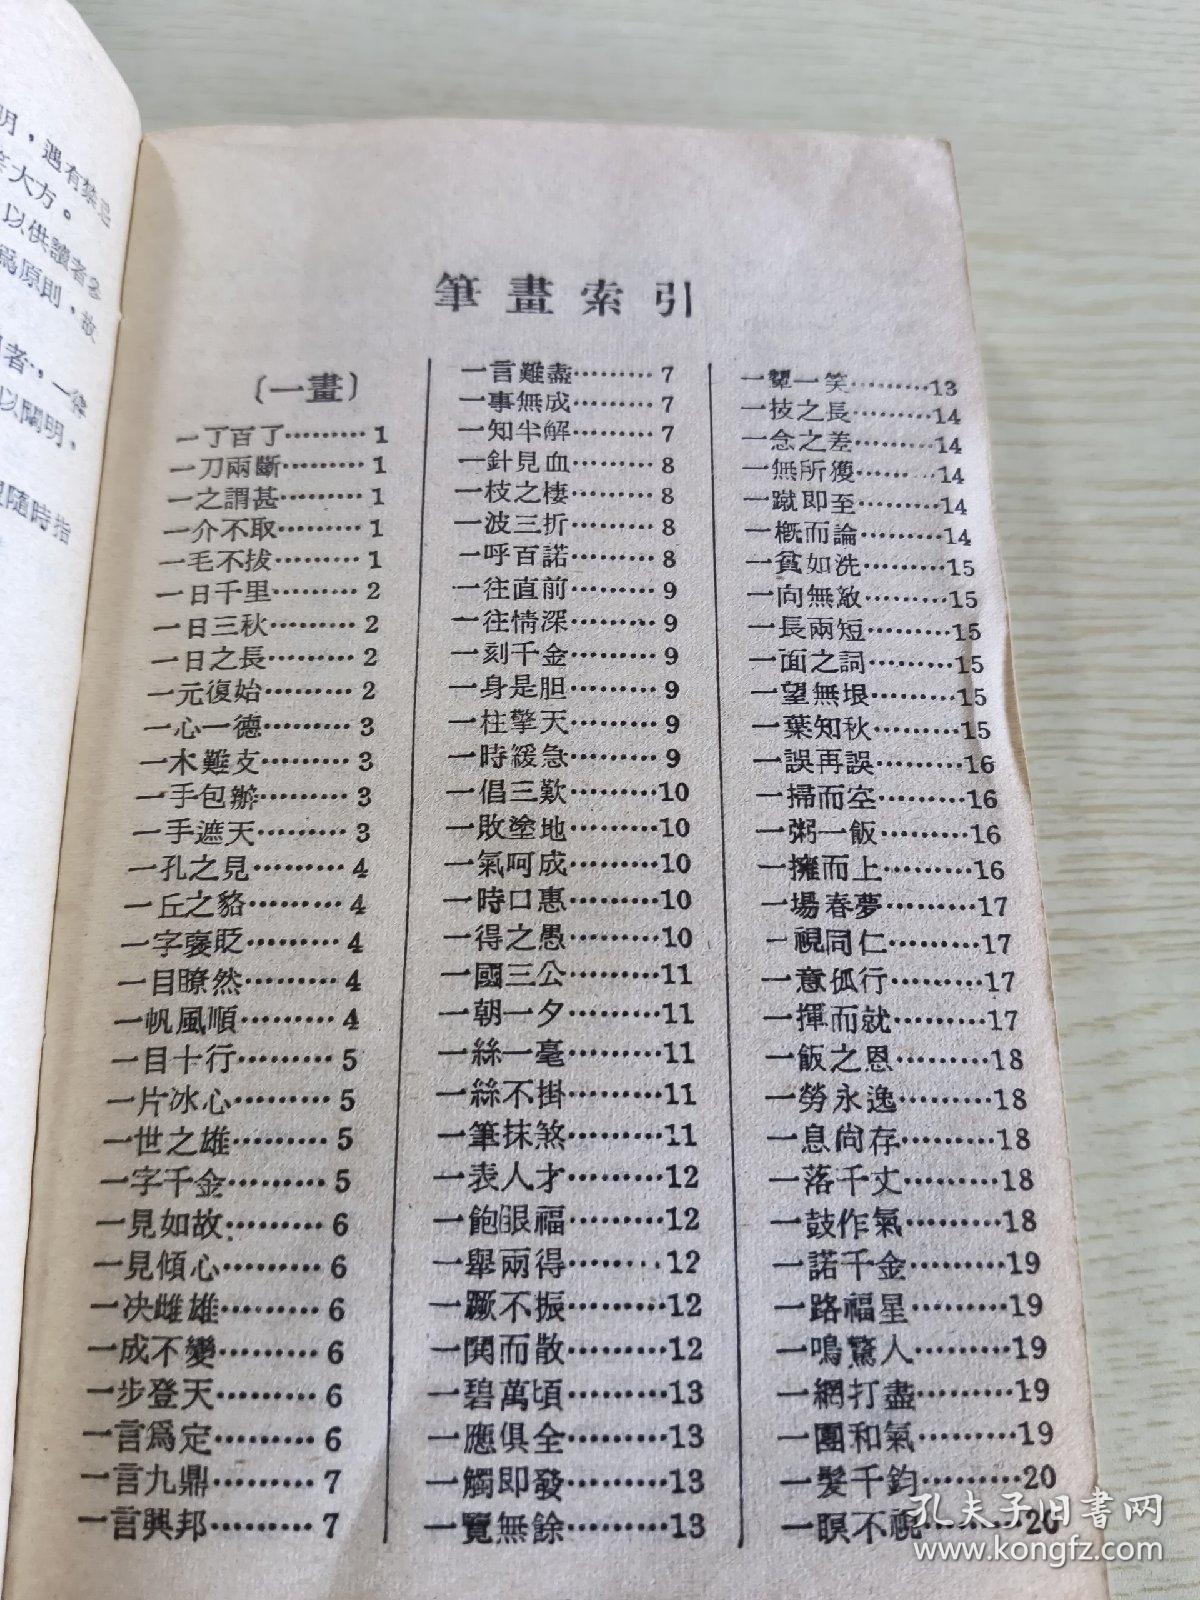 明，遇有禁忌
大方。
以供讀者參
爲原則，故
者，一律
以闡明，
隨時指
筆畫索引
〔一畫〕
一了百了………1
一刀兩斷………1
一之謂甚………1
一介不取………1
一毛不拔………1
一日千里………2
一日三秋………2
一日之長………2
一元復始………2
一心一德………3
一木難支………3
一手包辦………3
一手遮天………3
一孔之見………4
一丘之貉………4
一字褒貶………4
一目瞭然………4
一帆風順………4
一目十行………5
一片冰心………5
一世之雄………5
一字千金………5
一見如故………6
一見傾心………6
一決雌雄………6
一成不變………6
一步登天………6
一言爲定………6
一言九鼎………7
一言興邦………7
一言難盡………7
一事無成………7
一知半解………7
一針見血………8
一枝之棲………8
一波三折………8
一呼百諾………8
一往直前………9
一往情深………9
一刻千金………9
一身是胆………9
一柱擎天………9
一時緩急………9
一倡三歎………10
一敗塗地………10
一氣呵成………10
一時口惠………10
一得之愚………10
一國三公………11
一朝一夕………11
一絲一毫………11
一絲不掛………11
一筆抹煞………11
一表人才………12
一飽眼福………12
一舉兩得………12
一蹶不振………12
一鬨而散………12
一碧萬頃………13
一應俱全………13
一觸即發………13
一覽無餘………13
一顰一笑………13
一技之長………14
一念之差………14
一無所獲………14
一蹴即至………14
一概而論………14
一貧如洗………15
一向無敵………15
一長兩短………15
一面之詞………15
一望無垠………15
一葉知秋………15
一誤再誤………16
一掃而空………16
一粥一飯………16
一擁而上………16
一場春夢………17
一視同仁………17
一意孤行………17
一揮而就………17
一飯之恩………18
一勞永逸………18
一息尙存………18
一落千丈………18
一鼓作氣………18
一諾千金………19
一路福星………19
一鳴驚人………19
一網打盡………19
一團和氣………19
一髮千鈞………20
一瞑不視………20
孔夫子旧书网
www.kongfz.com